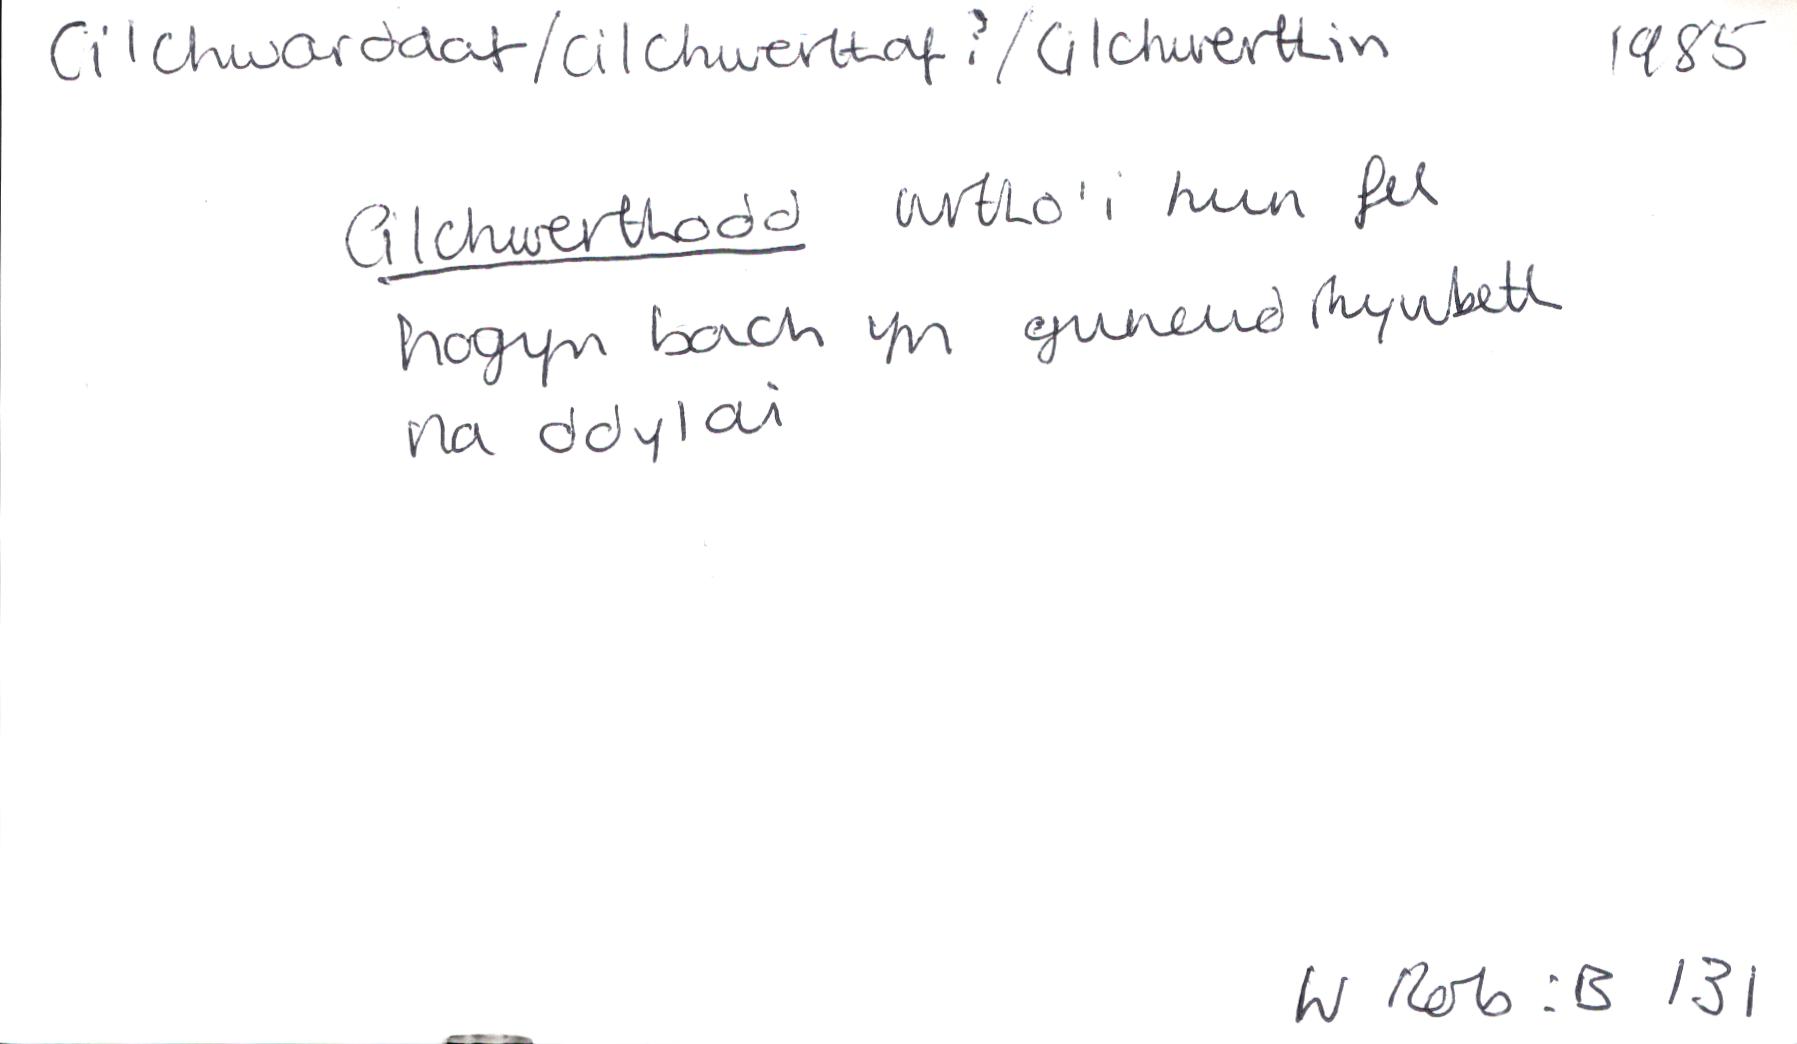 Cilchwarddaf/cilchwerthaf?/Cilchwerthin 1985
Cilchwerthodd wrtho'i hun fel
hogyn bach yn gwneud rhywbeth
na ddylai
W Rob: B 131